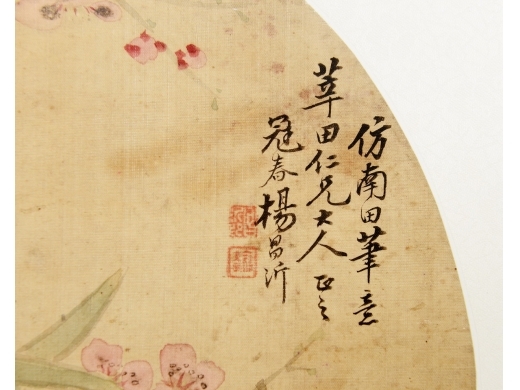 仿南田筆意
莘田仁兄大人正之
冠春楊昌沂